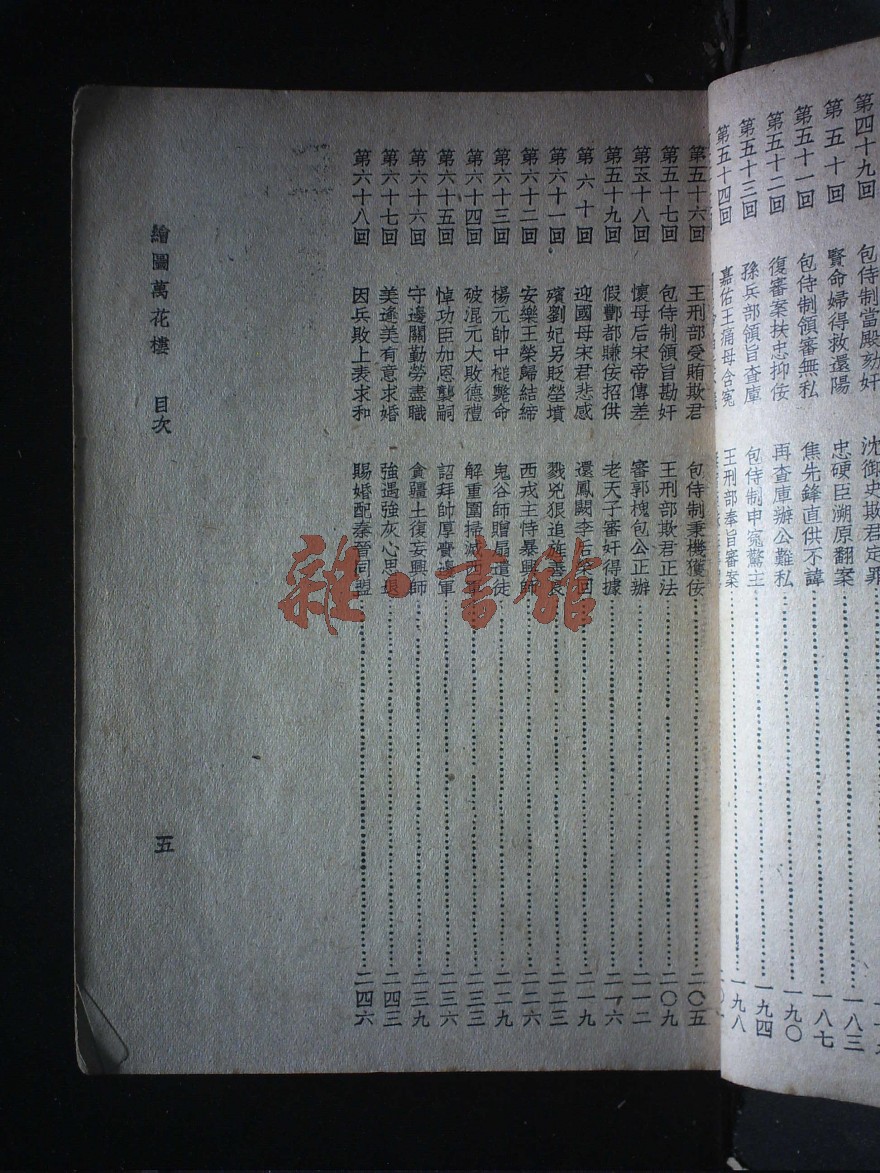 第四十九回 包待制當殿劾奸 沈御史欺君定罪
第五十回 賢命婦得救還陽 忠硬臣溯原翻案 一八三
第五十一回 包待制領審無私 焦先鋒直供不諱 一八七
第五十二回 復審案扶忠抑佞 再查庫辦公難私 一九〇
第五十三回 孫兵部領旨查庫 包待制申冤驚主 一九四
第五十四回 嘉佑王痛母含冤 王刑部奉旨審案 一九八
第五十六回 王刑部受賄欺君 包待制秉機獲佞 二〇五
第五十七回 包待制領旨勘奸 王刑部欺君正法 二〇九
第五十八回 懷母后宋帝傳差 審郭槐包公正辦 二一二
第五十九回 假酆都賺佞招供 老天子審奸得據 二一六
第六十回 迎國母宋君悲感 還鳳闕李后榮回 二一九
第六十一回 殯劉妃另貶塋墳 戮兇狠追旌善良 二二三
第六十二回 安樂王榮歸結締 西戎主恃暴興師 二二六
第六十三回 楊元帥中槌斃命 鬼谷師贈扇遣徒 二二九
第六十四回 破混元大敗德禮 解重圍掃滅西軍 二三三
第六十五回 悼功臣加恩襲嗣 詔拜帥厚賚邊軍 二三六
第六十六回 守邊關勤勞盡職 貪疆土復妄興師 二三九
第六十七回 美逢美有意求婚 強遇強灰心思退 二四三
第六十八回 因兵敗上表求和 賜婚配秦晉同盟 二四六
繪圖萬花樓 目次 五
雜·書館